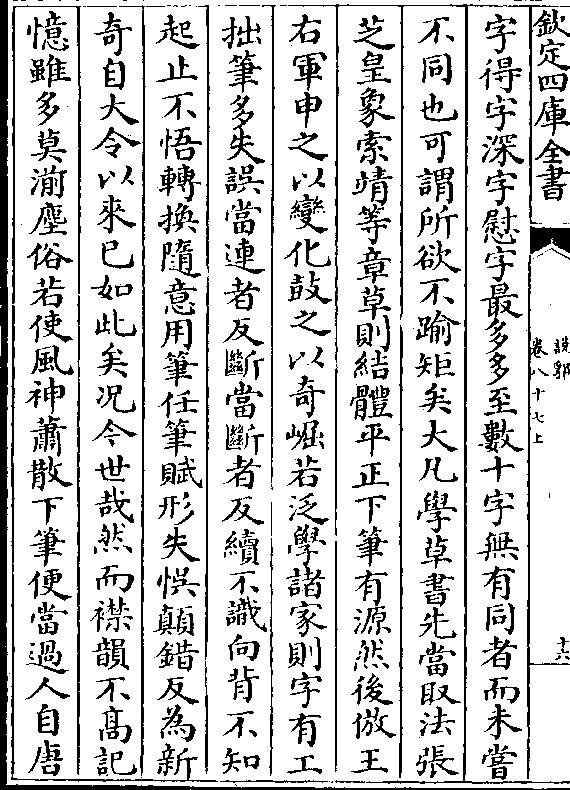 欽定四庫全書
說郛
卷八十七上
十六
字得字深字慰字最多多至數十字無有同者而未嘗
不同也可謂所欲不踰矩矣大凡學草書先當取法張
芝皇象索靖等章草則結體平正下筆有源然後倣王
右軍申之以變化鼓之以奇崛若泛學諸家則字有工
拙筆多失誤當連者反斷當斷者反續不識向背不知
起止不悟轉換隨意用筆任筆賦形失悞顛錯反為新
奇自大令以來已如此矣况今世哉然而襟韻不高記
憶雖多莫湔塵俗若使風神蕭散下筆便當過人自唐